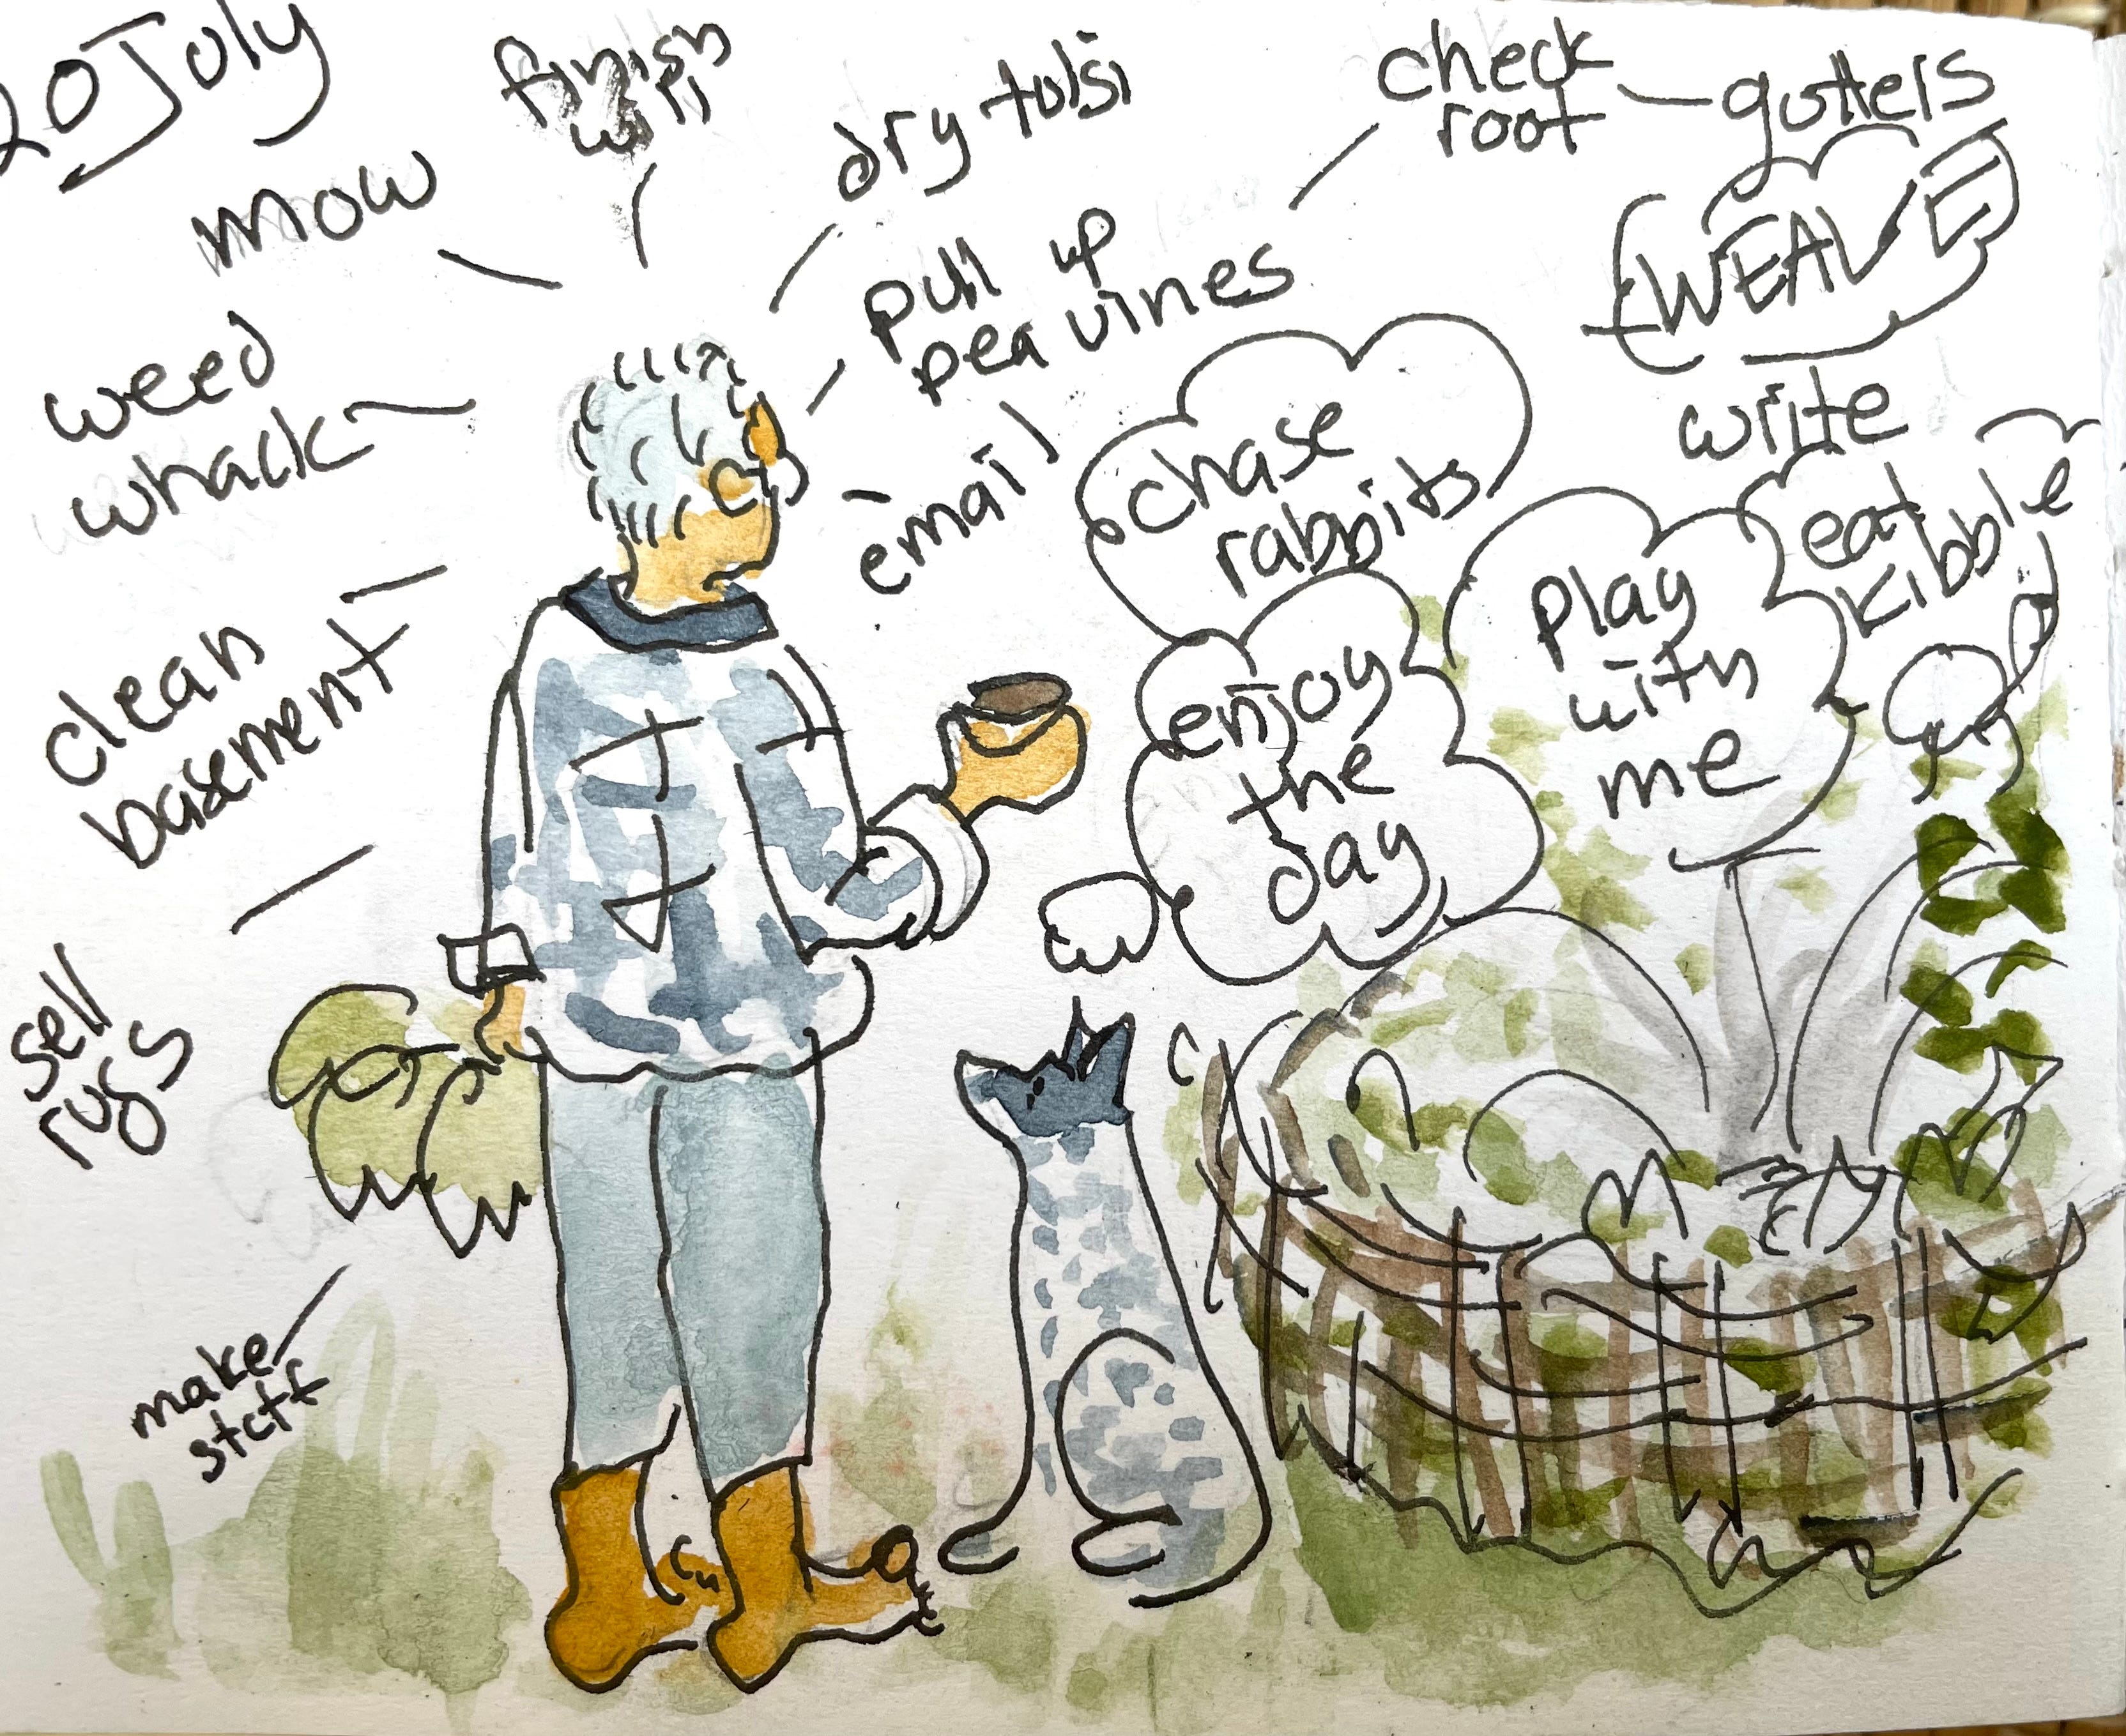 20 July
finish
will
dry tulsi
check
roof
gutters
mow
WEAVE
pull up
pea vines
weed
whack
email
write
chase
rabbits
eat
kibble
play
with
me
clean
basement
enjoy
the
day
sell
rugs
make
stuff